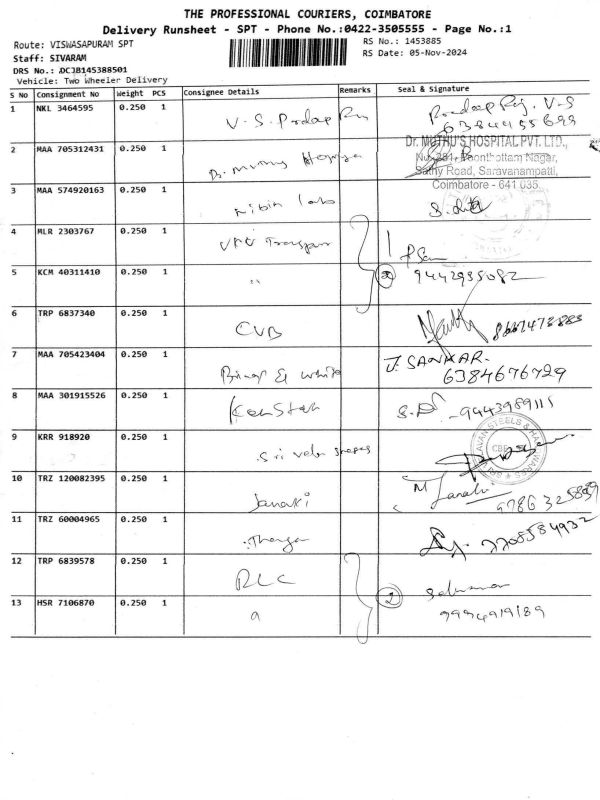 THE PROFESSIONAL COURIERS, COIMBATORE
Delivery Runsheet - SPT - Phone No.:0422-3505555 - Page No.:1
Route: VISWASAPURAM SPT
RS No.: 1453885
Staff: SIVARAM
RS Date: 05-Nov-2024
DRS No.: DCJB145388501
Vehicle: Two Wheeler Delivery
S No Consignment No Weight PCS Consignee Details Remarks Seal & Signature
1 NKL 3464595 0.250 1 V.S. Pradeep Raj Pradeep Raj. V-S
6384455693
Dr. MUTHU'S HOSPITAL PVT. LTD.,
2 MAA 705312431 0.250 1
Saravanampatti,
Coimbatore - 641 035
3 MAA 574920163 0.250 1 labs
4 MLR 2303767 0.250 1 VRV
5 KCM 40311410 0.250 1 " 2 9442935082
6 TRP 6837340 0.250 1 CVB 8667473883
7 MAA 705423404 0.250 1 & white J. SANKAR.
6384676729
8 MAA 301915526 0.250 1 9443989115
9 KRR 918920 0.250 1 Sri shapes
10 TRZ 120082395 0.250 1 Janaki M Janaki
11 TRZ 60004965 0.250 1 2208584932
12 TRP 6839578 0.250 1 RLC
13 HSR 7106870 0.250 1 2 9994919189